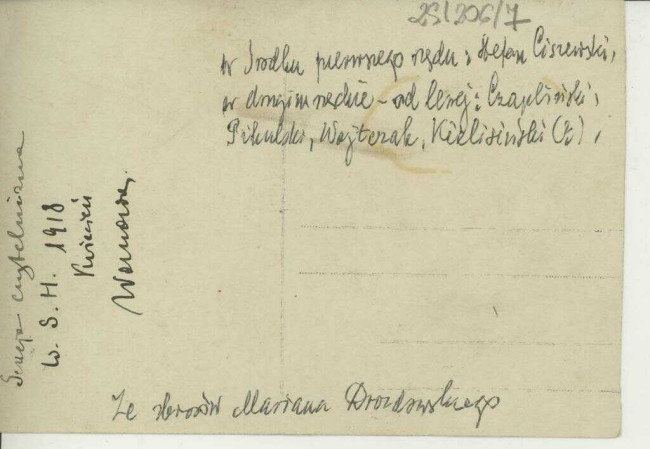 25/206/7
w środku pierwszego rzędu: Stefan Ciszewski,
w drugim rzędzie – od lewej: Czapliński,
Pikulski, Wojtczak, Kielisiński (?),
czytelniana
W. S. H. 1918
Kwiecień
Warszawa.
Ze zbiorów Mariana Drozdowskiego